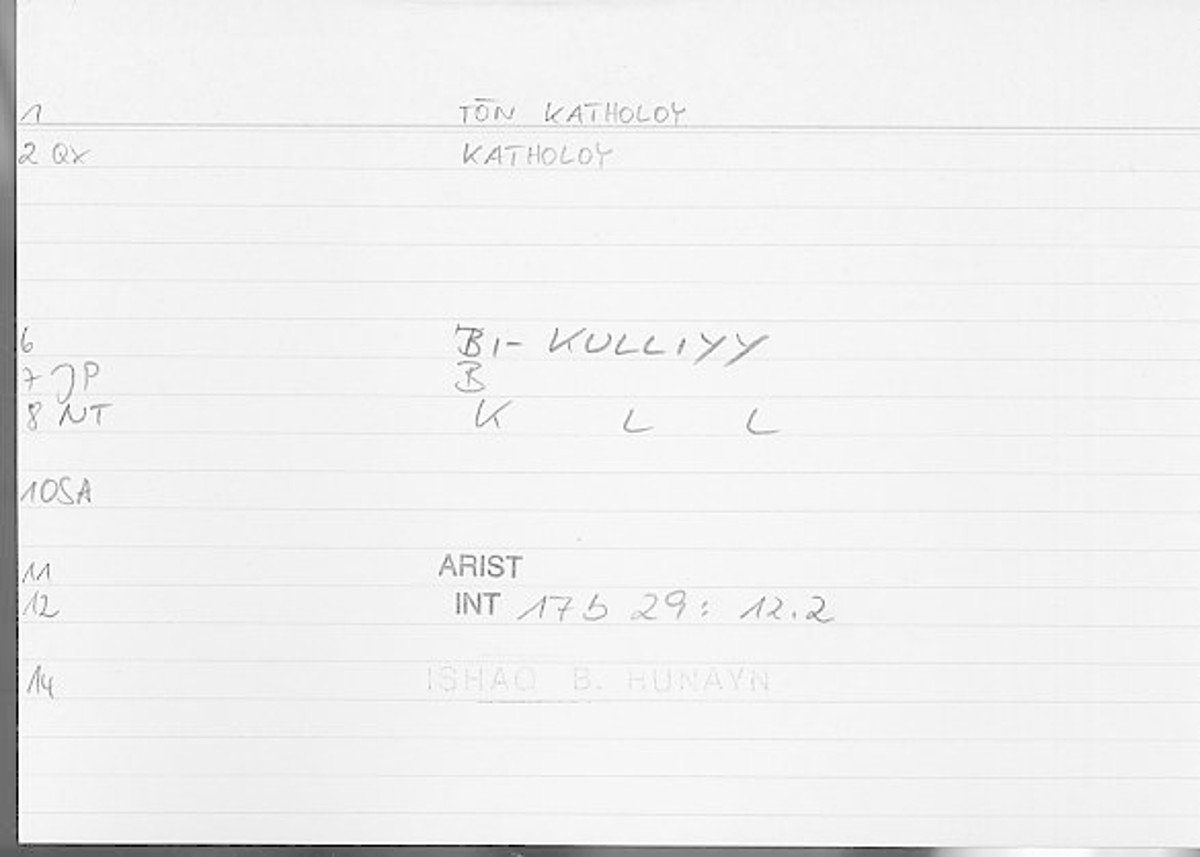 1 TŌN KATHOLOY
2 Qx KATHOLOY
6 BI- KULLIYY
7 JP B
8 NT K L L
10SA
11 ARIST
12 INT 17b 29: 12.2
14 ISHAQ B. HUNAYN